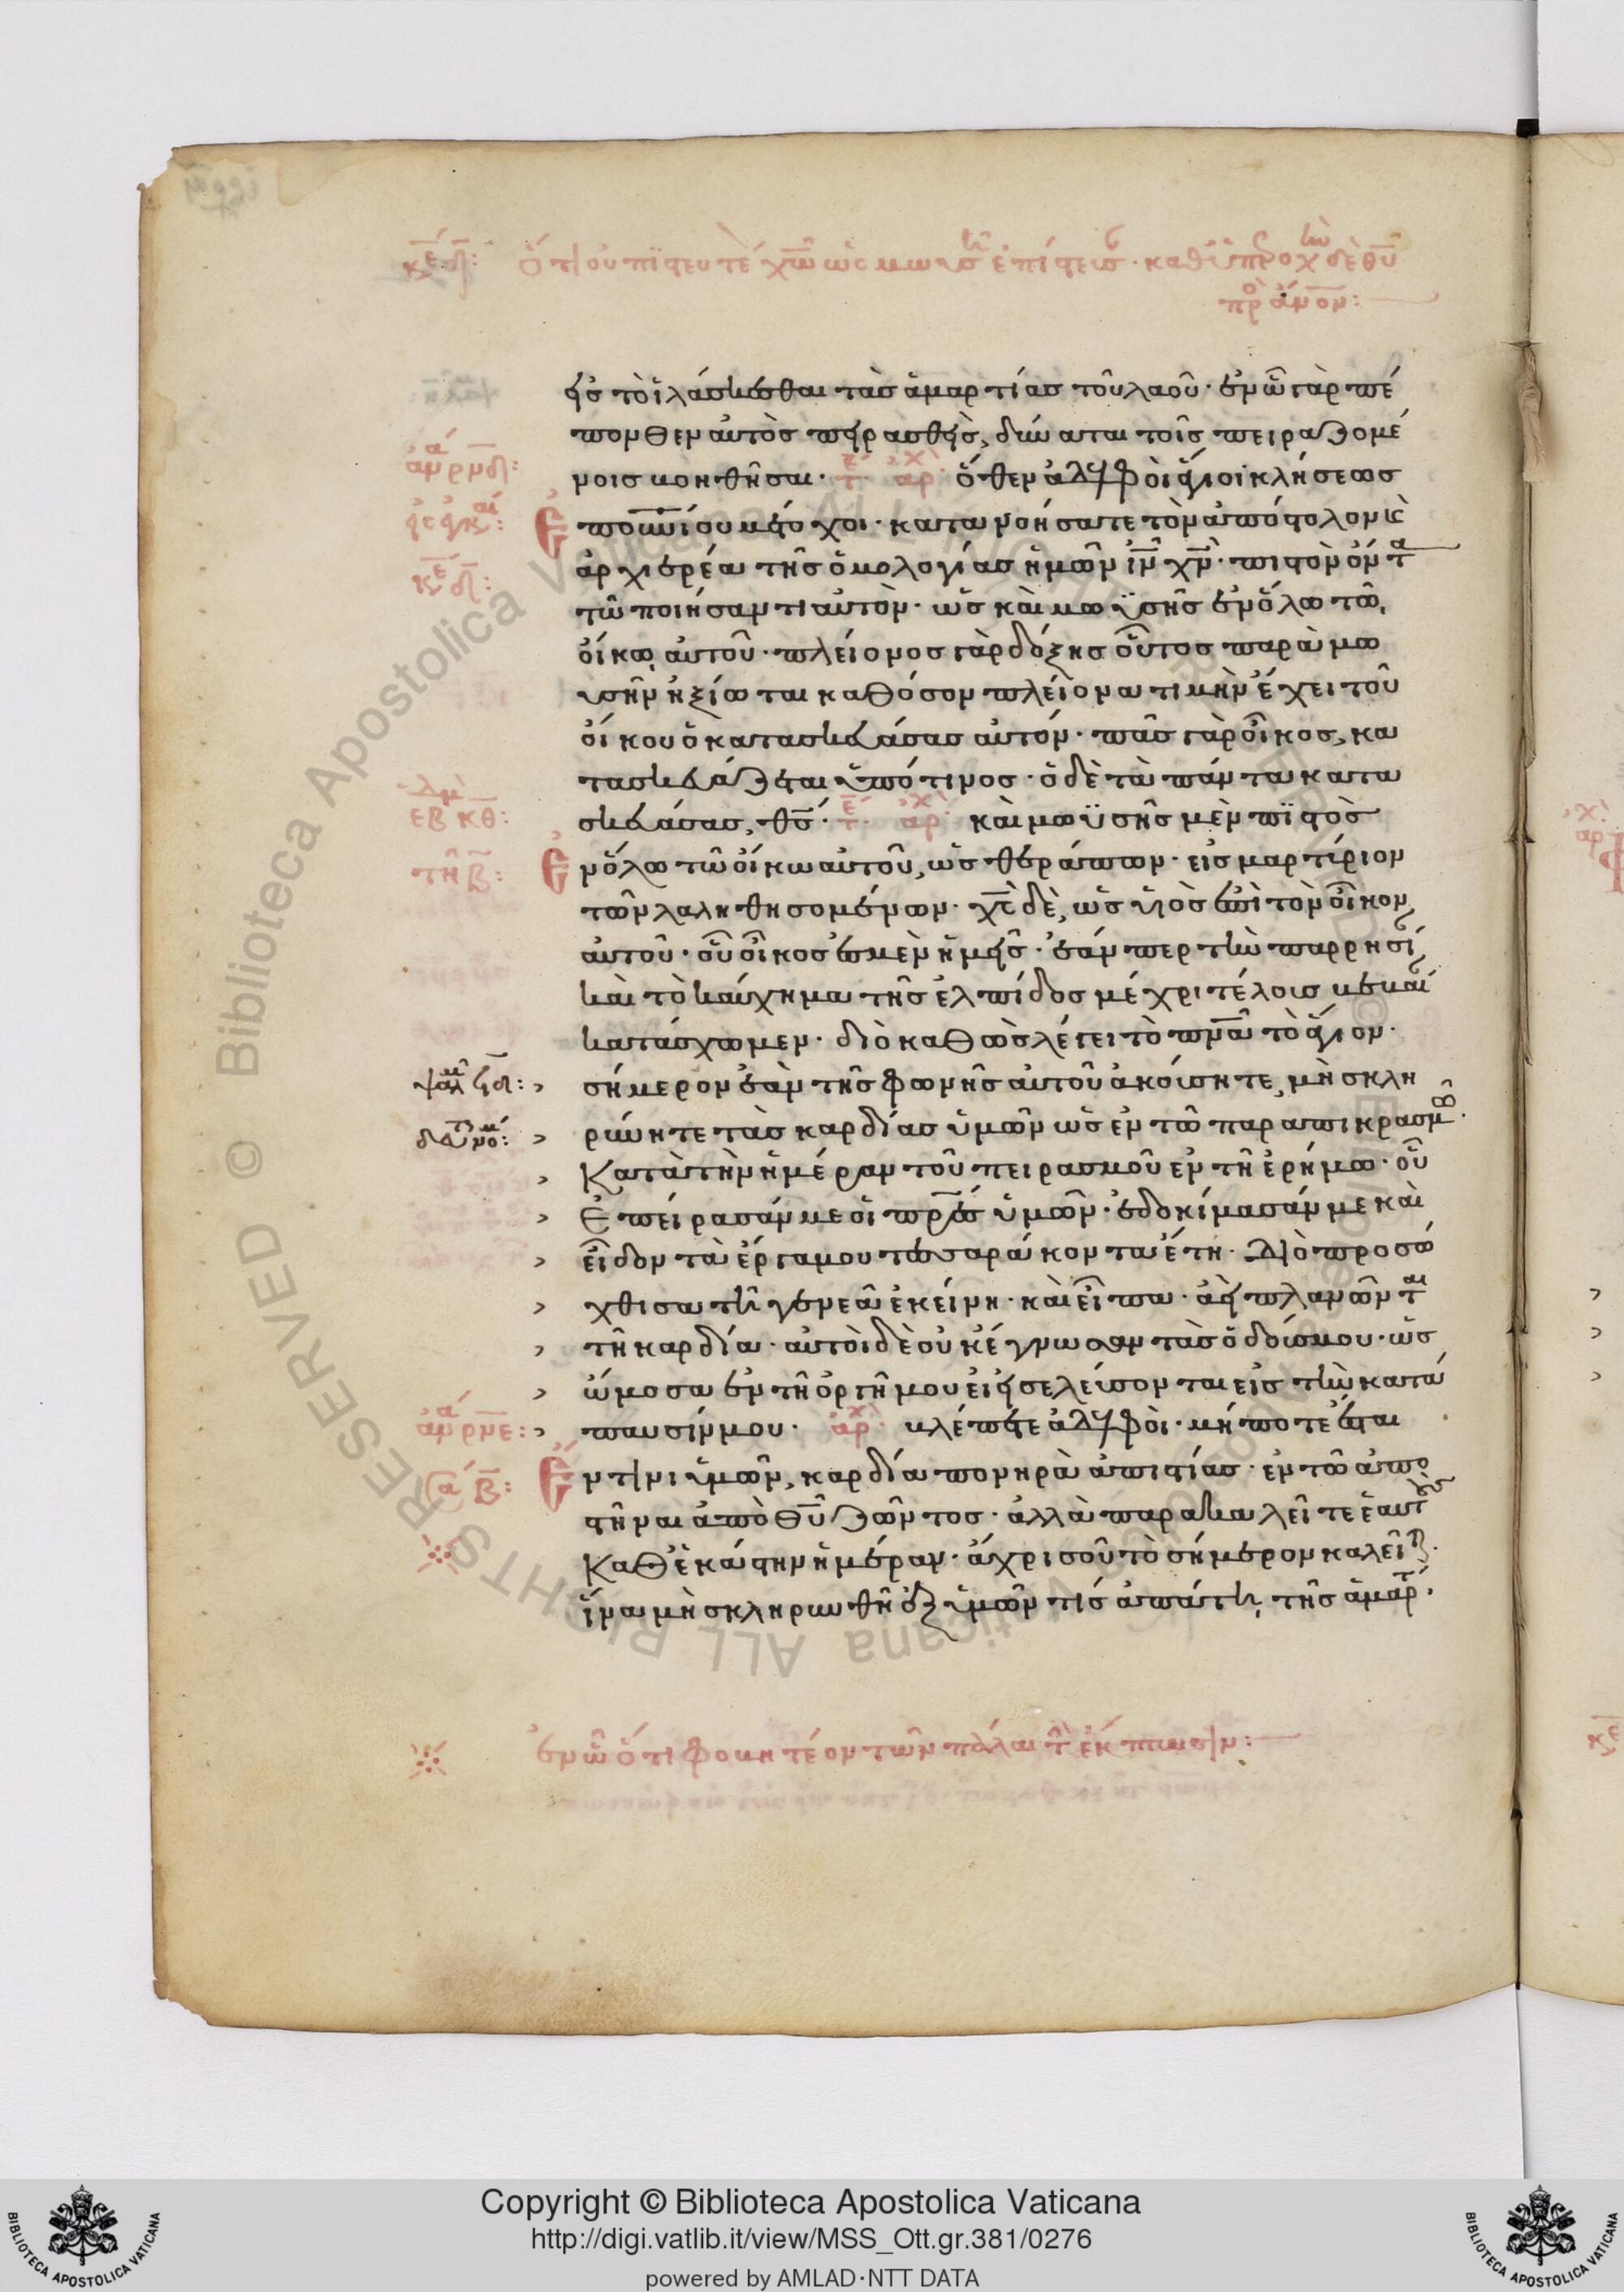 εἰς τὸ ἱλάσκεσθαι τὰς ἁμαρτίας τοῦ λαοῦ· ἐν ᾧ γὰρ πέ
πονθεν αὐτὸς πειρασθεὶς, δύναται τοῖς πειραζομέ
νοις βοηθῆσαι· ὅθεν ἀδελφοὶ ἅγιοι κλήσεως
ἐπουνίου μέτοχοι· κατανοήσατε τὸν ἀπόστολον κὲ
ἀρχιερέα τῆς ὁμολογίας ἡμῶν ἰν χν· πιστὸν ὄντα
τῶ ποιήσαντι αὐτὸν· ὡς καὶ μωϋσῆς ἐν ὅλω τῶ,
οἴκω αὐτοῦ· πλείονος γὰρ δόξης οὗτος παρὰ μω
υσῆν ἠξίωται καθόσον πλείονα τιμὴν ἔχει τοῦ
οἴκου ὁ κατασκευάσας αὐτόν· πᾶς γὰρ οἶκος, κα
τασκευάζεται ὑπό τινος· ὁ δὲ τὰ πάντα κατα
σκευάσας, θς· καὶ μωϋσῆς μὲν πιστὸς
ἐν ὅλω τῶ οἴκω αὐτοῦ, ὡς θεράπων· εἰς μαρτύριον
τῶν λαληθησομένων· χς δὲ, ὡς υἱὸς ἐπὶ τὸν οἶκον
αὐτοῦ· οὗ οἶκος ἐσμὲν ἡμεῖς· ἐάνπερ τὴν παρρησί
καὶ τὸ καύχημα τῆς ἐλπίδος μέχρι τέλους βεβαί
κατάσχωμεν· διὸ καθὼς λέγει τὸ πνα τὸ ἅγιον·
ψαλμ
σήμερον ἐὰν τῆς φωνῆς αὐτοῦ ἀκούσητε, μὴ σκλη
ρύνητε τὰς καρδίας ὑμῶν ὡς ἐν τῶ παραπικρασμ
Κατὰ τὴν ἡμέραν τοῦ πειρασμοῦ ἐν τῆ ἐρήμω· οὗ
Ἐπείρασάν με οἱ πρες ὑμῶν· ἐδοκίμασάν με καὶ
εἶδον τὰ ἔργα μου τεσσαράκοντα ἔτη· Διὸ προσώ
χθισα τῆ γενεᾶ ἐκείνη· καὶ εἶπα· ἀεὶ πλανῶνται
τῆ καρδία· αὐτοὶ δὲ οὐκ ἔγνωσαν τὰς ὁδούς μου· ὡς
ὤμοσα ἐν τῆ ὀργῆ μου εἰ εἰσελεύσονται εἰς τὴν κατά
παυσίν μου· βλέπετε ἀδελφοὶ· μήποτε ἔσται
ἔν τινι ὑμῶν, καρδία πονηρὰ ἀπιστίας· ἐν τῶ ἀπο
στῆναι ἀπὸ θυ ζῶντος· ἀλλὰ παρακαλεῖτε ἑαυτ
Καθ ἑκάστην ἡμέραν· ἄχρις οὗ τὸ σήμερον καλεῖτ
ἵνα μὴ σκληρυνθῆ ἐξ ὑμῶν τίς ἀπάτη, τῆς ἁμαρ
ἐν ᾧ ὅτι φοβητέον τῶν πάλαι τ ἔκπτωσιν: